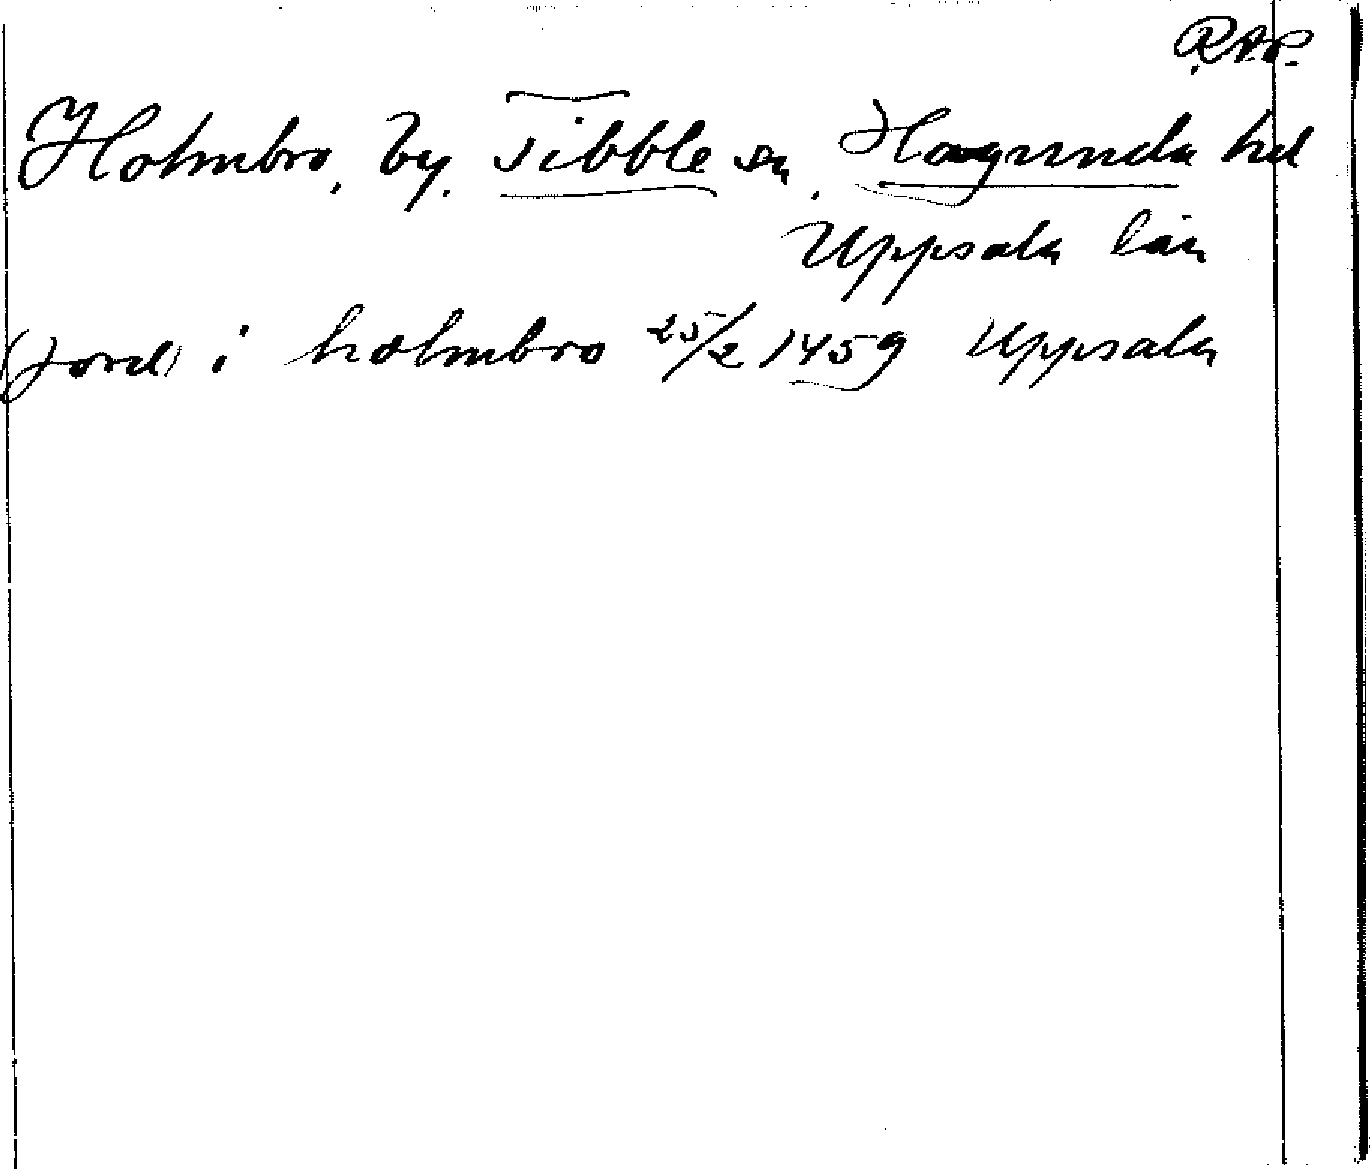 R.A.P.
Holmbro, by, Tibble sn, Hagunda hd
Uppsala län
(jord) i holmbro 25/2 1459 Uppsala